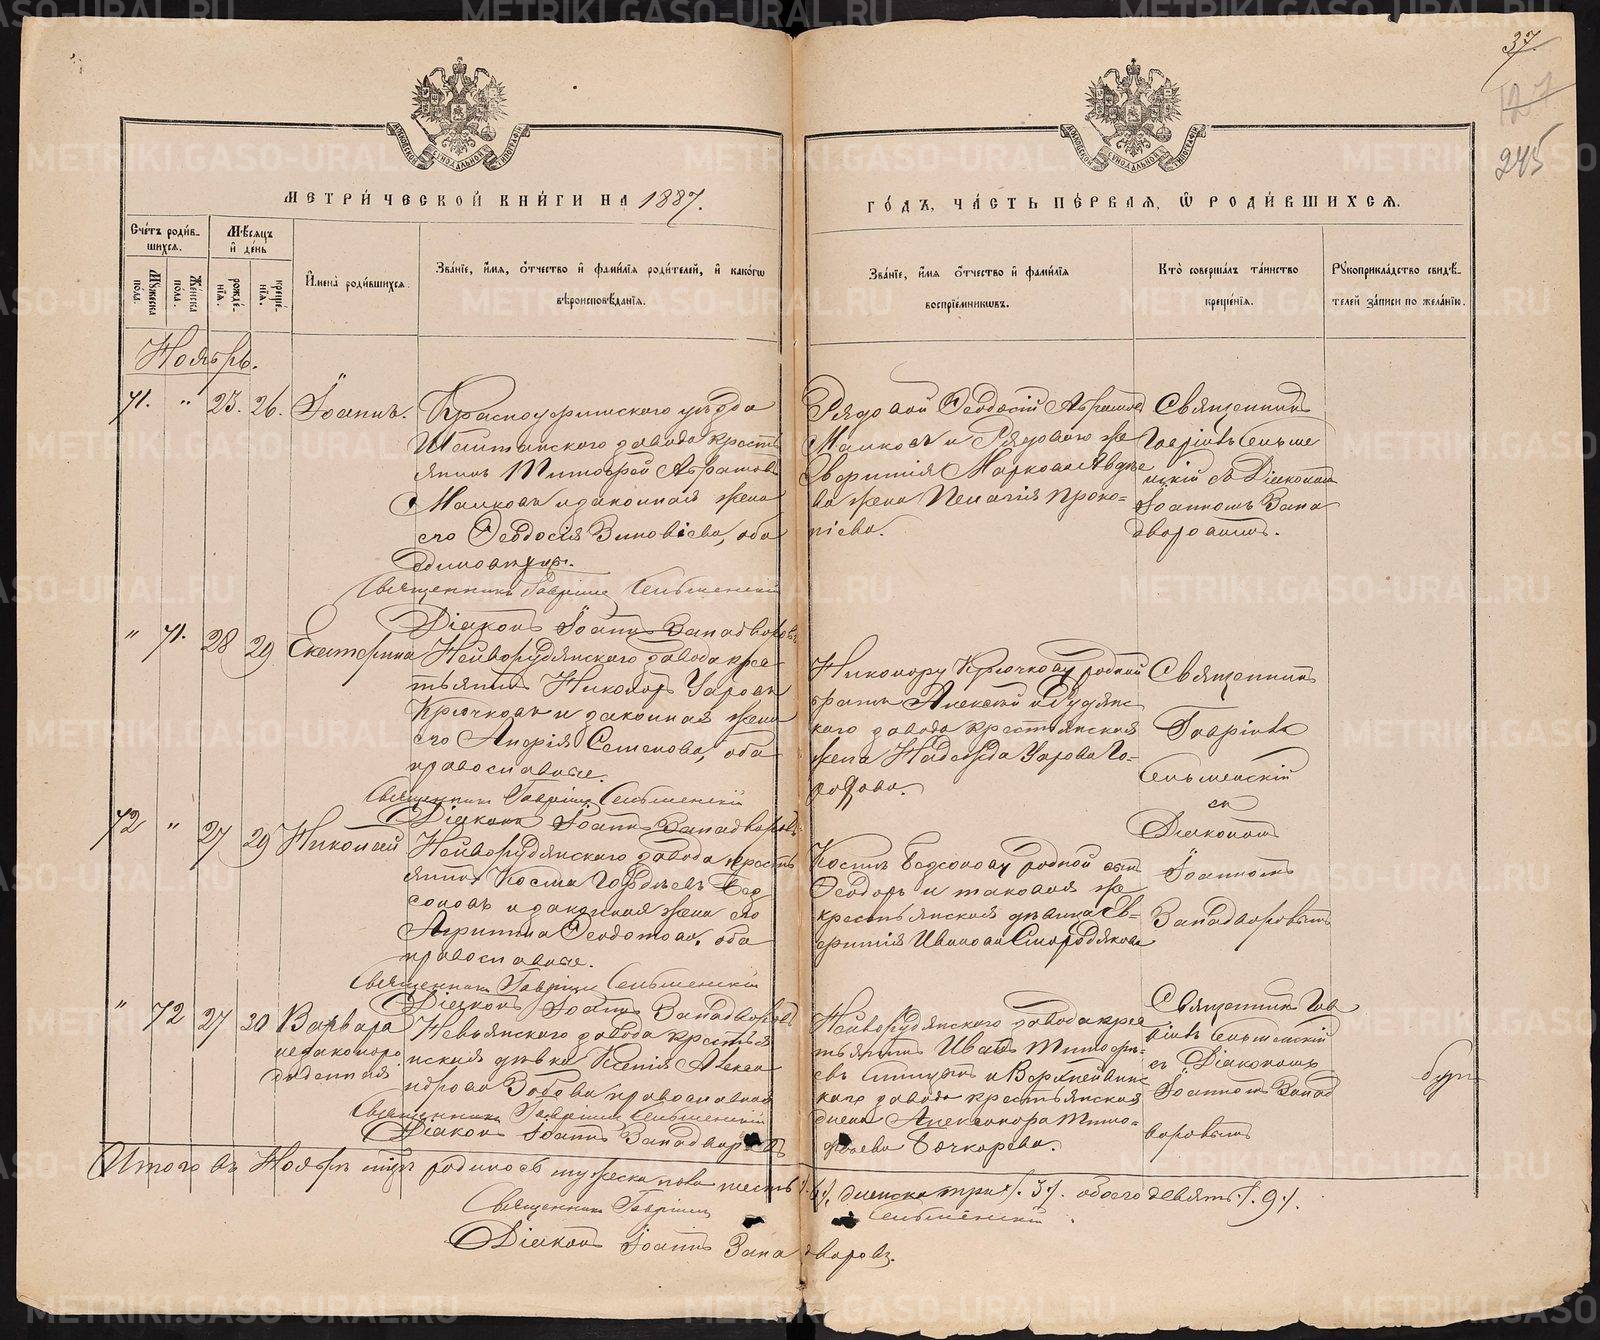 37
127
245
МЕТРИ́ЧЕСКОЙ КНИ́ГИ НА 1887.
ГО́ДЪ, ЧА́СТЬ ПЕ́РВАЯ, Ѡ РОДИ́ВШИХСЯ.
Сче́тъ роди́в-
шихся.
Мꙋ́жеска по́ла.
Же́нска по́ла.
Мѣ́сяцъ и де́нь
рожде́-
нїя.
креще́-
нїя.
Имена̀ роди́вшихся.
Зва́нїе, и́мя, о́тчество и фами́лїя роди́телей, и како́гѡ
вѣроисповѣ́данїя.
Зва́нїе, и́мя о́тчество и фами́лїя
воспрїе́мникѡвъ.
Кто̀ соверша́лъ та́инство
креще́нїя.
Рꙋкоприкла́дство свидѣ́-
телей за́писи по жела́нїю.
Ноябрь.
71. " 23. 26. Іоаннъ.
Красноуфимскаго уѣзда
Шайтанскаго завода кресть
янинъ Тимофей Аѳанасьевъ
Малковъ и законная жена
его Ѳеодосія Зиновіева, оба
единовѣрцы.
Священникъ Гавріилъ Сельменскій
Діаконъ Іоаннъ Западворовъ
Рядовой Ѳеодосій
Малковъ и Рядоваго же
жена Пелагія Проко-
піева.
Священникъ
Гавріилъ Сельме
нскій съ Діакономъ
Іоанномъ Запа
дворовымъ.
" 71. 28 29 Екатерина
Нейворудянскаго завода крес
тьянинъ Никаноръ Уаровъ
Крючковъ и законная жена
его Семенова, оба
православные.
Священникъ Гавріилъ Сельменскій
Діаконъ Іоаннъ Западворовъ
Никанору Крючкову родной
братъ Алексѣй и Рудянс
каго завода крестьянская
жена Надежда Уарова Го-
Священникъ
Гавріилъ
Сельменскій
съ
Діакономъ
Іоанномъ
Западворовымъ
72 " 27 29 Николай
Нейворудянскаго завода кресть
янинъ Косма Гордѣевъ Бед
соновъ и законная жена его
Агриппина Ѳеодотова, оба
православные.
Священникъ Гавріилъ Сельменскій
Діаконъ Іоаннъ Западворовъ
Космѣ Бедсонову родной сынъ
Ѳеодоръ и таковая же
крестьянская дѣвица Ев-
фимія Иванова Смородякова
" 72 27 30 Варвара
незаконоро
жденная
Невьянскаго завода крестья
нская дѣвка Ксенія Алекса
ндрова Зобова православная
Священникъ Гавріилъ Сельменскій
Діаконъ Іоаннъ Западворовъ
Нейворудянскаго завода крес
тьянинъ Иванъ Тимофе-
евъ и Верхнейвинс
каго завода крестьянская
Александра Тимо-
феева Бочкарева.
Священникъ Гав
ріилъ Сельменскій
съ Діакономъ
Іоанномъ Запад
воровымъ
Итого въ Ноябрѣ мцѣ родилось мужеска пола шесть /.6/, женска три /.3/. обоего девять /.9/.
Священникъ Гавріилъ Сельменскій
Діаконъ Іоаннъ Западворовъ.